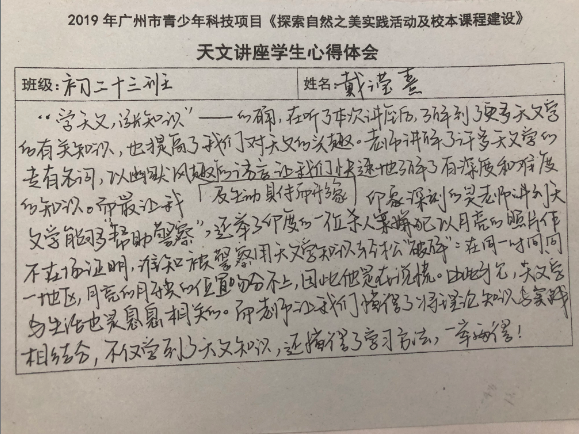 2019 年广州市青少年科技项目《探索自然之美实践活动及校本课程建设》
天文讲座学生心得体会
班级: 初二十三班 姓名: 戴滢熹
“学天文,涨知识”——的确,在听了本次讲座后,了解到了更多天文学
的有关知识,也提高了我们对天文的兴趣。老师讲解了许多天文学的
专有名词,以幽默风趣的语言让我们快速地了解了有深度和难度
的知识。而最让我 印象深刻的是老师讲到天
文学能够“帮助警察”,还举了印度的一位杀人案嫌犯以月亮的照片作
不在场证明,谁知被警察用天文学知识轻松“破解”:在同一时间同
一地区,月亮的月缺的位置分不上,因此他是在说慌。由此可见,天文学
与生活也是息息相关的。而老师让我们懂得了将理论知识与实践
相结合,不仅学到了天文知识,还搞得了学习方法,一举两得!